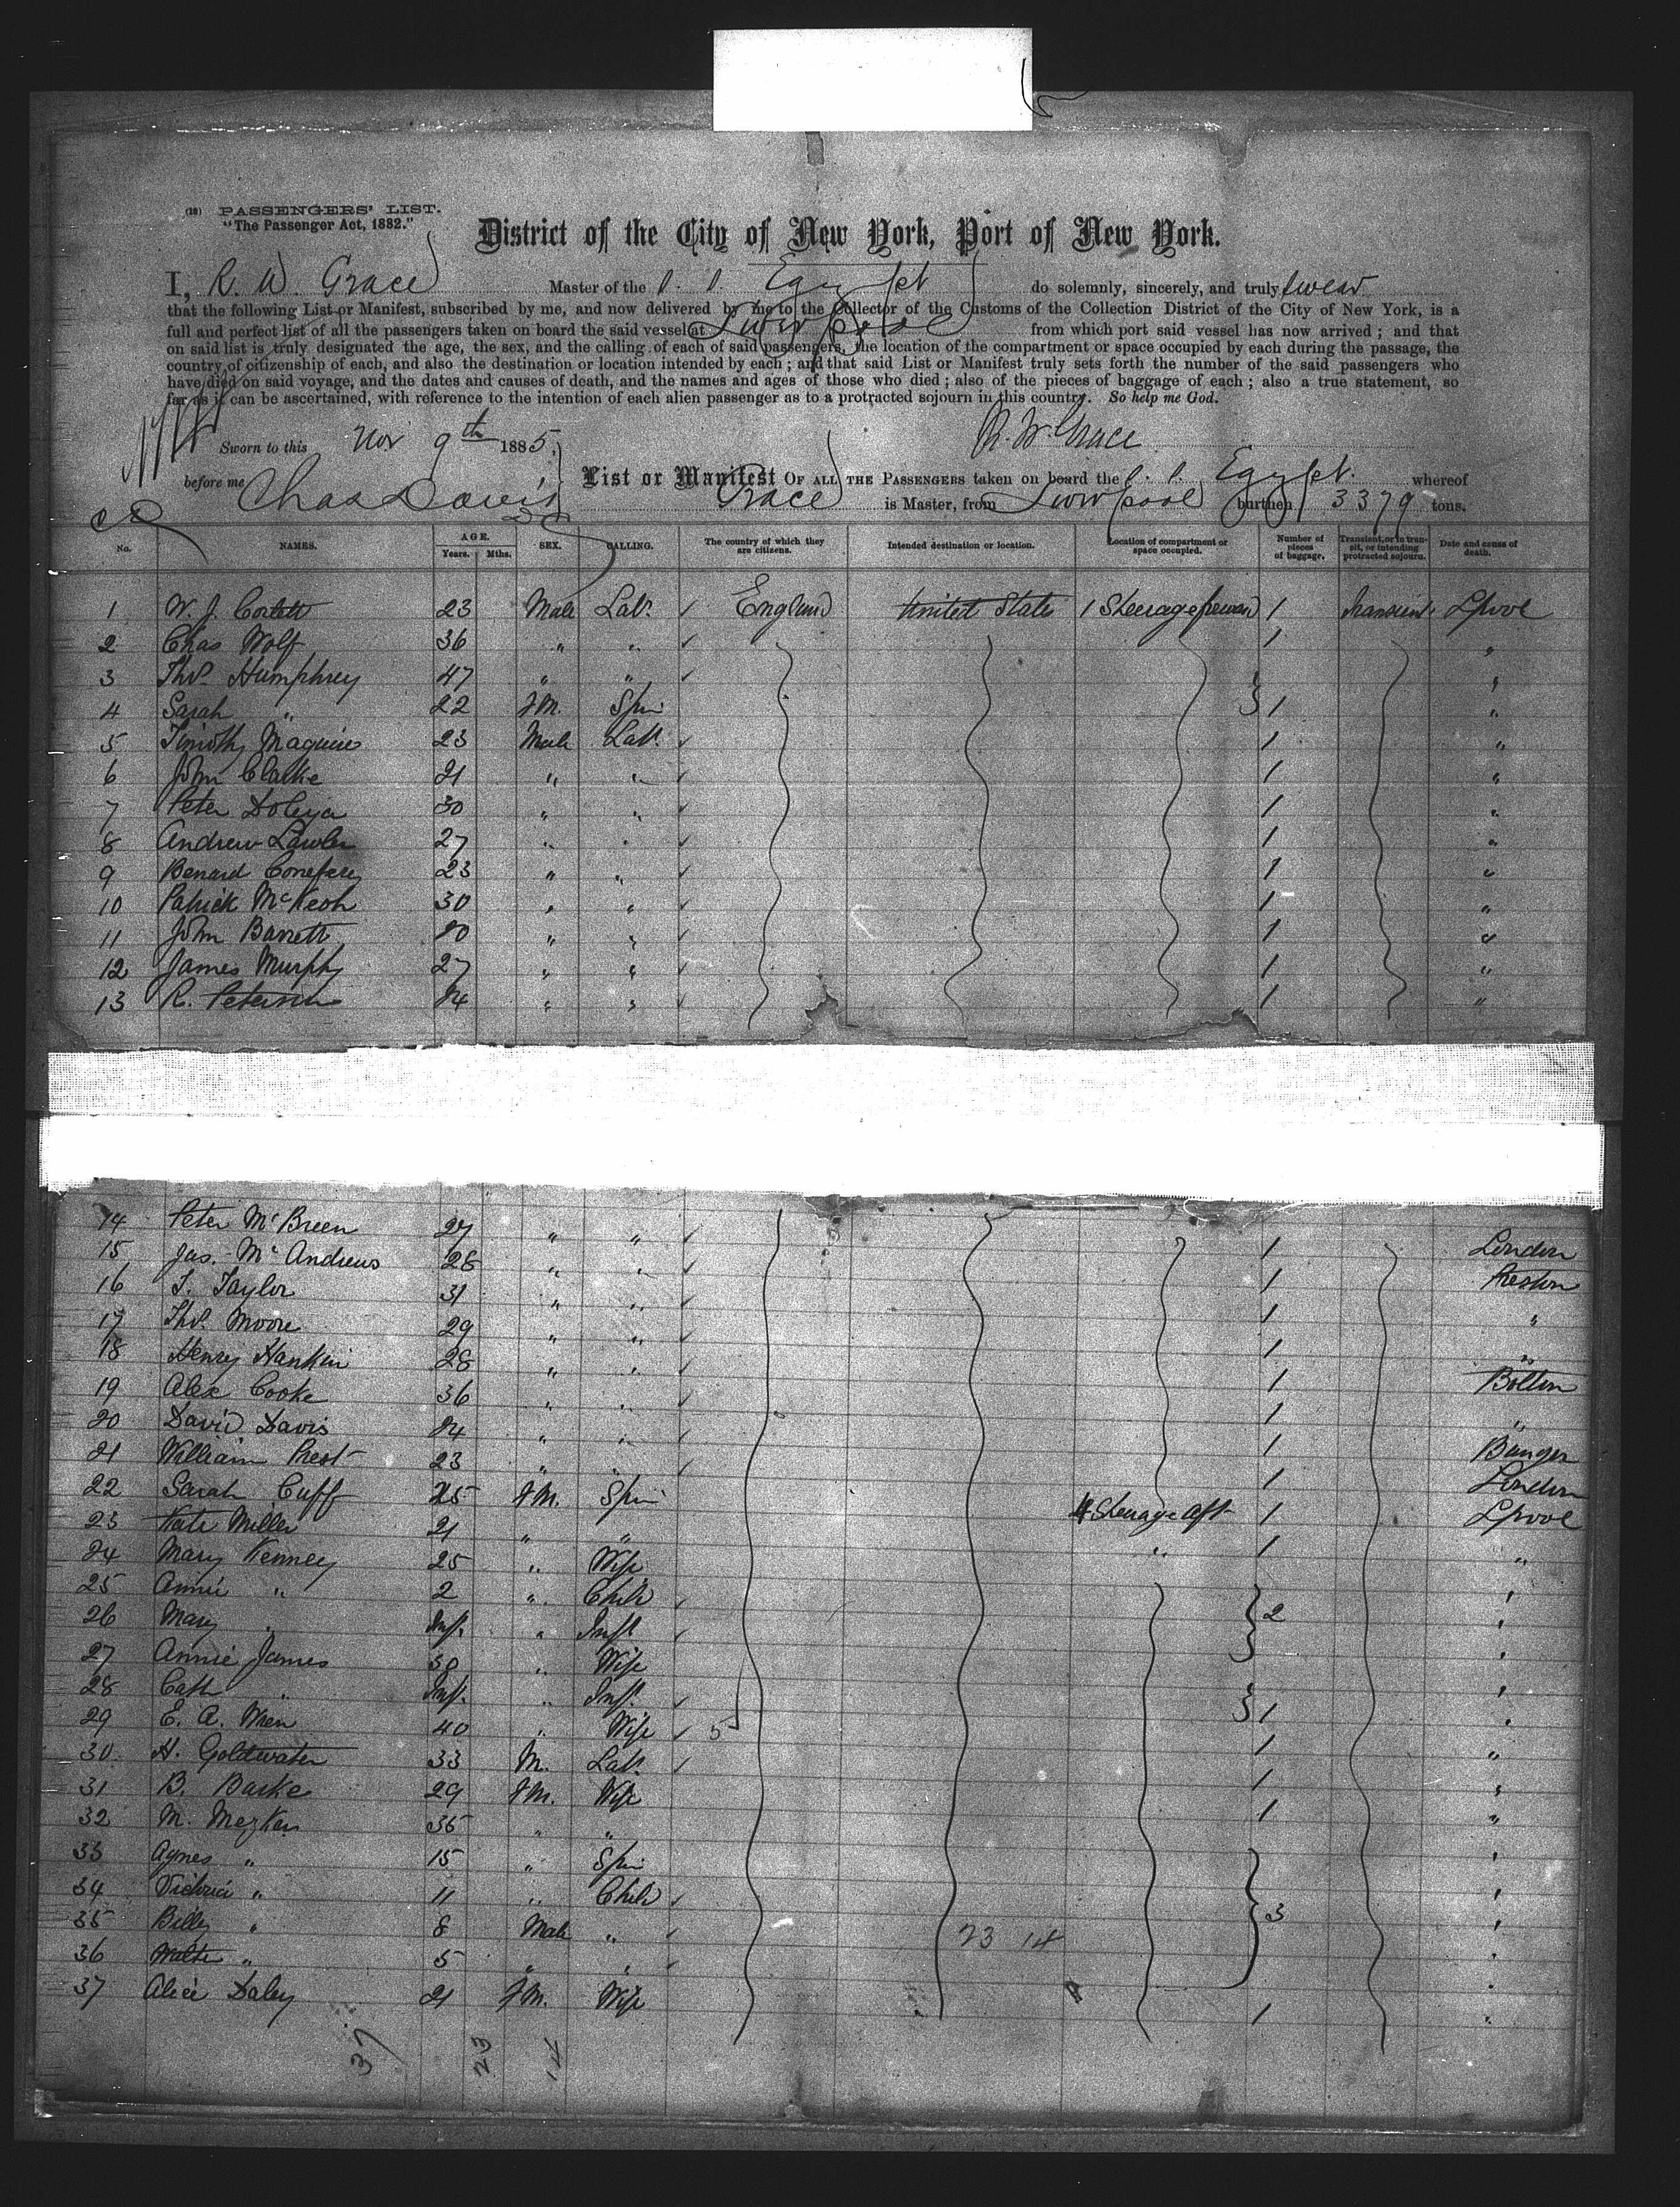 (18) PASSENGERS' LIST.
"The Passenger Act, 1882."
District of the City of New York, Port of New York.
I, R. W. Grace Master of the S. S. Egypt do solemnly, sincerely, and truly swear
that the following List or Manifest, subscribed by me, and now delivered by me to the Collector of the Customs of the Collection District of the City of New York, is a
full and perfect list of all the passengers taken on board the said vessel at Liverpool from which port said vessel has now arrived; and that
on said list is truly designated the age, the sex, and the calling of each of said passengers, the location of the compartment or space occupied by each during the passage, the
country of citizenship of each, and also the destination or location intended by each; and that said List or Manifest truly sets forth the number of the said passengers who
have died on said voyage, and the dates and causes of death, and the names and ages of those who died; also of the pieces of baggage of each; also a true statement, so
far as it can be ascertained, with reference to the intention of each alien passenger as to a protracted sojourn in this country. So help me God.
Sworn to this Nov 9th 1885, R. W. Grace
before me Chas Davis List or Manifest OF ALL THE PASSENGERS taken on board the S. S. Egypt. whereof
Grace is Master, from Liverpool burthen 3379 tons.
No. NAMES. AGE. Years. Mths. SEX. CALLING. The country of which they are citizens. Intended destination or location. Location of compartment or space occupied. Number of pieces of baggage. Transient, or in transit, or intending protracted sojourn. Date and cause of death.
1 W. J. Corlett 23 Male Labr. England United State 1 Steerage forward 1 Transient Lpool
2 Chas Wolf 36 " " 1 "
3 Thos. Humphrey 47 " " "
4 Sarah " 22 FM. Spin 1 "
5 Timothy Maguire 23 Male Labr. 1 "
6 John Clarke 21 " " 1 "
7 Peter 30 " " 1 "
8 Andrew Lawler 27 " " 1 "
9 Benard Conefrey 23 " " 1 "
10 Patrick McKeoh 30 " " 1 "
11 John Barrett 20 " " 1 "
12 James Murphy 27 " " 1 "
13 R. Peterson 24 " " 1 "
14 Peter McBreen 27 " " 1 London
15 Jas. McAndrews 28 " " 1 Preston
16 T. Taylor 31 " " 1 "
17 Thos. Moore 29 " " 1 "
18 Henry Hankin 28 " " 1 Bolton
19 Alex Cooke 36 " " 1 "
20 David Davis 24 " " 1 Bangor
21 William Prest 23 " " 1 London
22 Sarah Cuff 25 FM. Spin 4 Steerage aft 1 Lpool
23 Kate Miller 21 " " " 1 "
24 Mary Kenney 25 " Wife "
25 Annie " 2 " Child 2 "
26 Mary " Inf. " Inft "
27 Annie James 30 " Wife "
28 Cath " Inf. " Inft. 1 "
29 E. A. Wren 40 " Wife 5 1 "
30 H. Goldwater 33 M. Labr. 1 "
31 B. Burke 29 FM. Wife 1 "
32 M. 35 " " "
33 Agnes " 15 " Spin "
34 Victoria " 11 " Child 3 "
35 Billy " 8 Male " "
36 Walter " 5 " " "
37 Alice Daley 21 FM. Wife 1 "
23 14
37 23 14